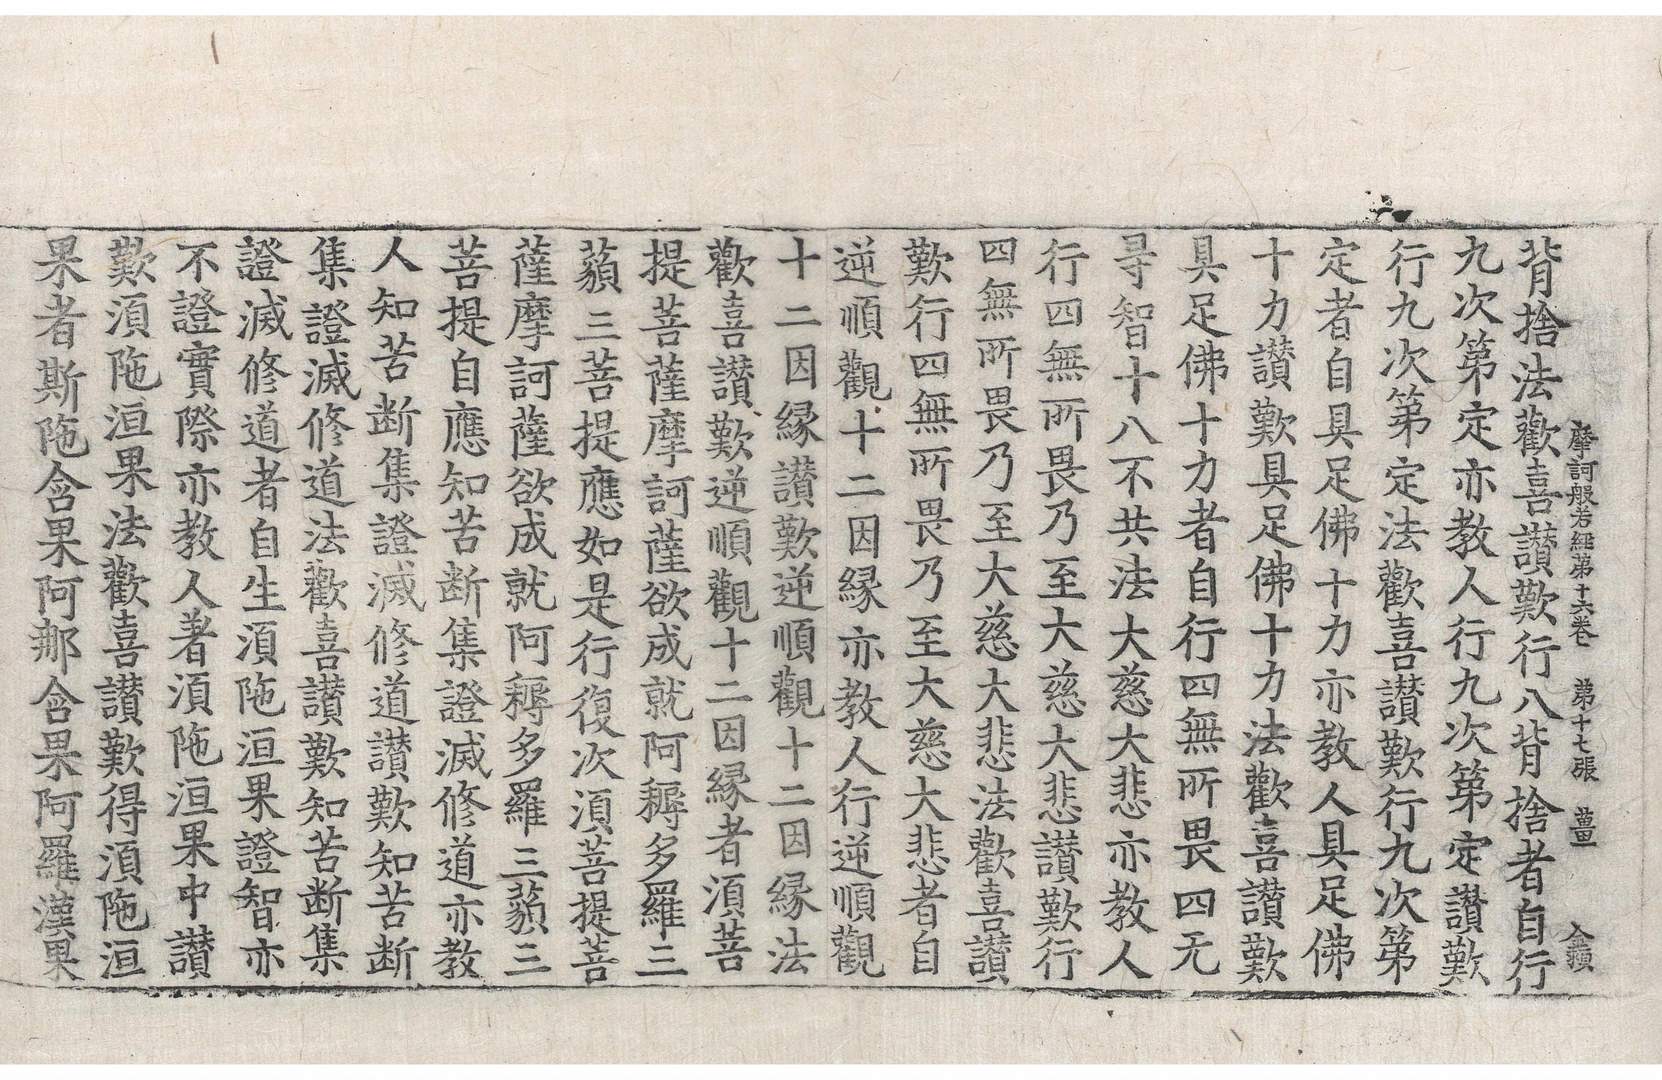 摩訶般若經第十六卷 第十七張 薑
背捨法歡喜讃歎行八背捨者自行
九次第定亦教人行九次第定讃歎
行九次第定法歡喜讃歎行九次第
定者自具足佛十力亦教人具足佛
十力讃歎具足佛十力法歡喜讃歎
具足佛十力者自行四無所畏四无
㝵智十八不共法大慈大悲亦教人
行四無所畏乃至大慈大悲讃歎行
四無所畏乃至大慈大悲法歡喜讃
歎行四無所畏乃至大慈大悲者自
逆順觀十二因縁亦教人行逆順觀
十二因縁讃歎逆順觀十二因縁法
歡喜讃歎逆順觀十二因縁者須菩
提菩薩摩訶薩欲成就阿耨多羅三
藐三菩提應如是行復次須菩提菩
薩摩訶薩欲成就阿耨多羅三藐三
菩提自應知苦断集證滅修道亦教
人知苦断集證滅修道讃歎知苦断
集證滅修道法歡喜讃歎知苦断集
證滅修道者自生須陁洹果證智亦
不證實際亦教人著須陁洹果中讃
歎須陁洹果法歡喜讃歎得須陁洹
果者斯陁含果阿那含果阿羅漢果